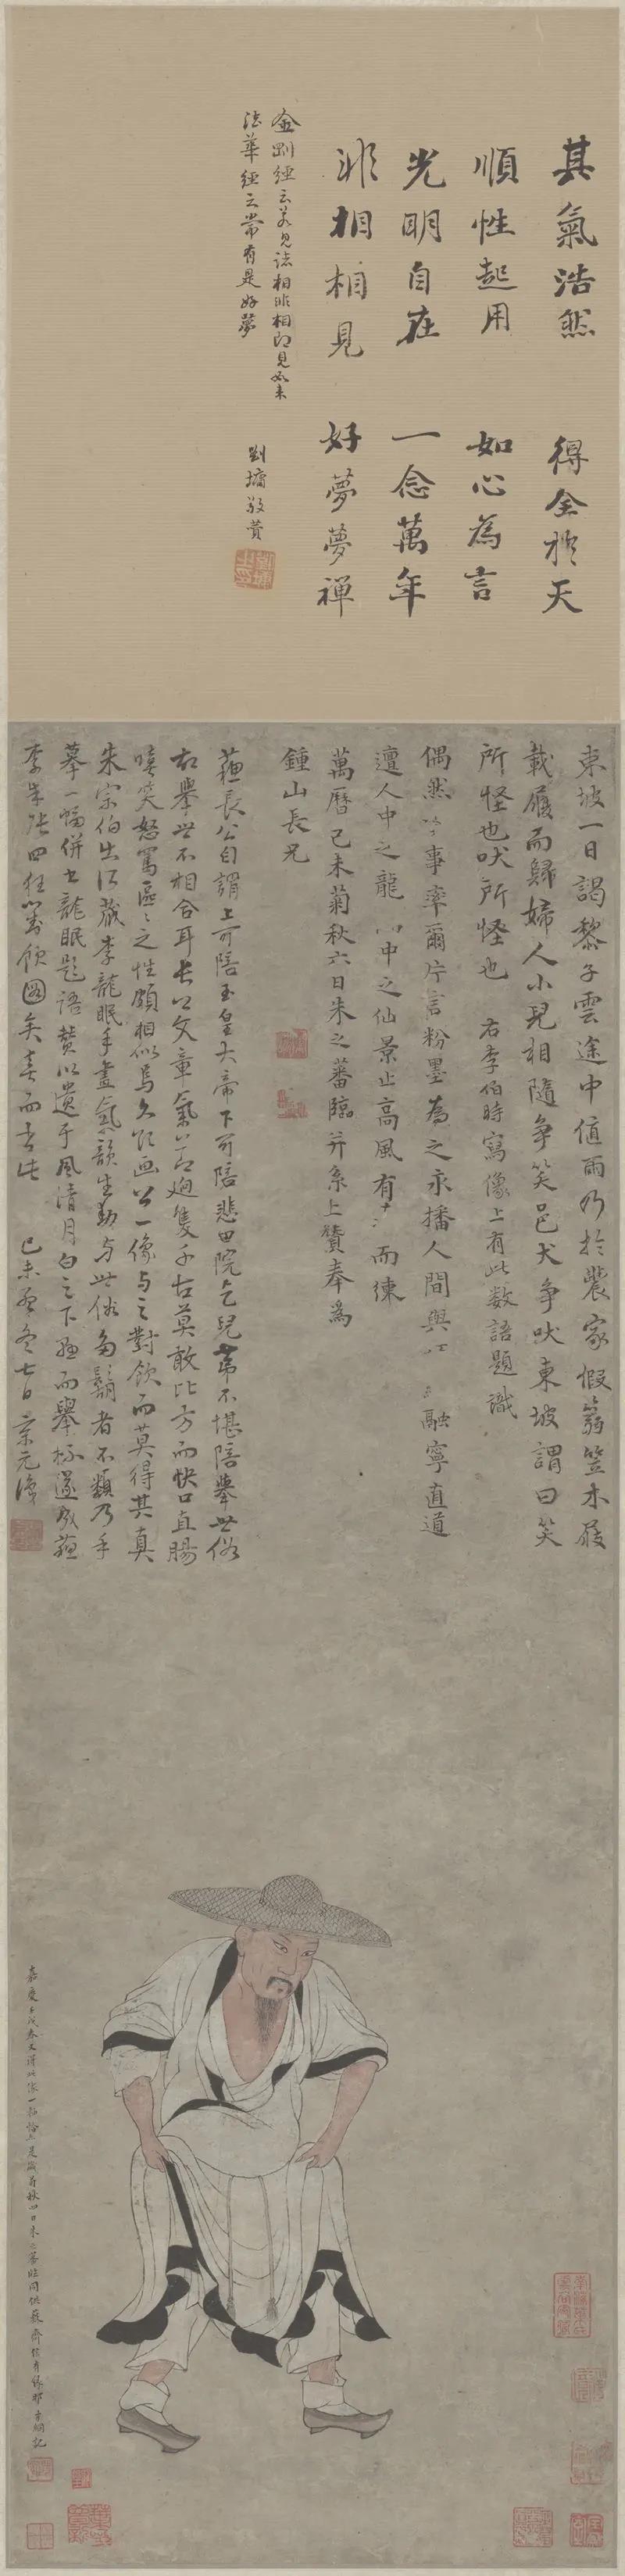 其氣浩然 得全於天
順性起用 如心為言
光明自在 一念萬年
非相相見 好夢夢禅
金剛經云若見諸相非相即見如来
法華經云常有是好夢
劉墉敬贊
東坡一日謁黎子雲途中值雨乃於農家假篛笠木屐
載履而歸婦人小兒相隨爭笑邑犬爭吠東坡謂曰笑
所怪也吠所怪也 右李伯時寫像上有此数語題識
偶然事率爾片言粉墨為之永播人間與融寧直道
邅人中之龍中之仙景止高風有而谏
萬曆己未菊秋六日朱之蕃臨并系上贊奉為
鍾山長兄
蘓長公自謂上可陪玉皇大帝下可陪悲田院乞兒第不堪陪舉世俗
故舉世不相合耳長公文章氣節迥隻千古莫敢比方而快口直腸
嘻笑怒罵區區之性頗相似焉久欲画公一像与之對飲而莫得其真
朱宗伯出所藏李龍眠手畫氣韻生動与世俗多鬍者不類乃手
摹一幅併书龍眠題語贊以遺予風清月白之下而舉杯遂成蘓
李朱張四狂對飲圖矣喜而書此 己未冬七日
嘉慶壬戌春又得此像一軸是菊秋六日朱之蕃臨同供蘇齋